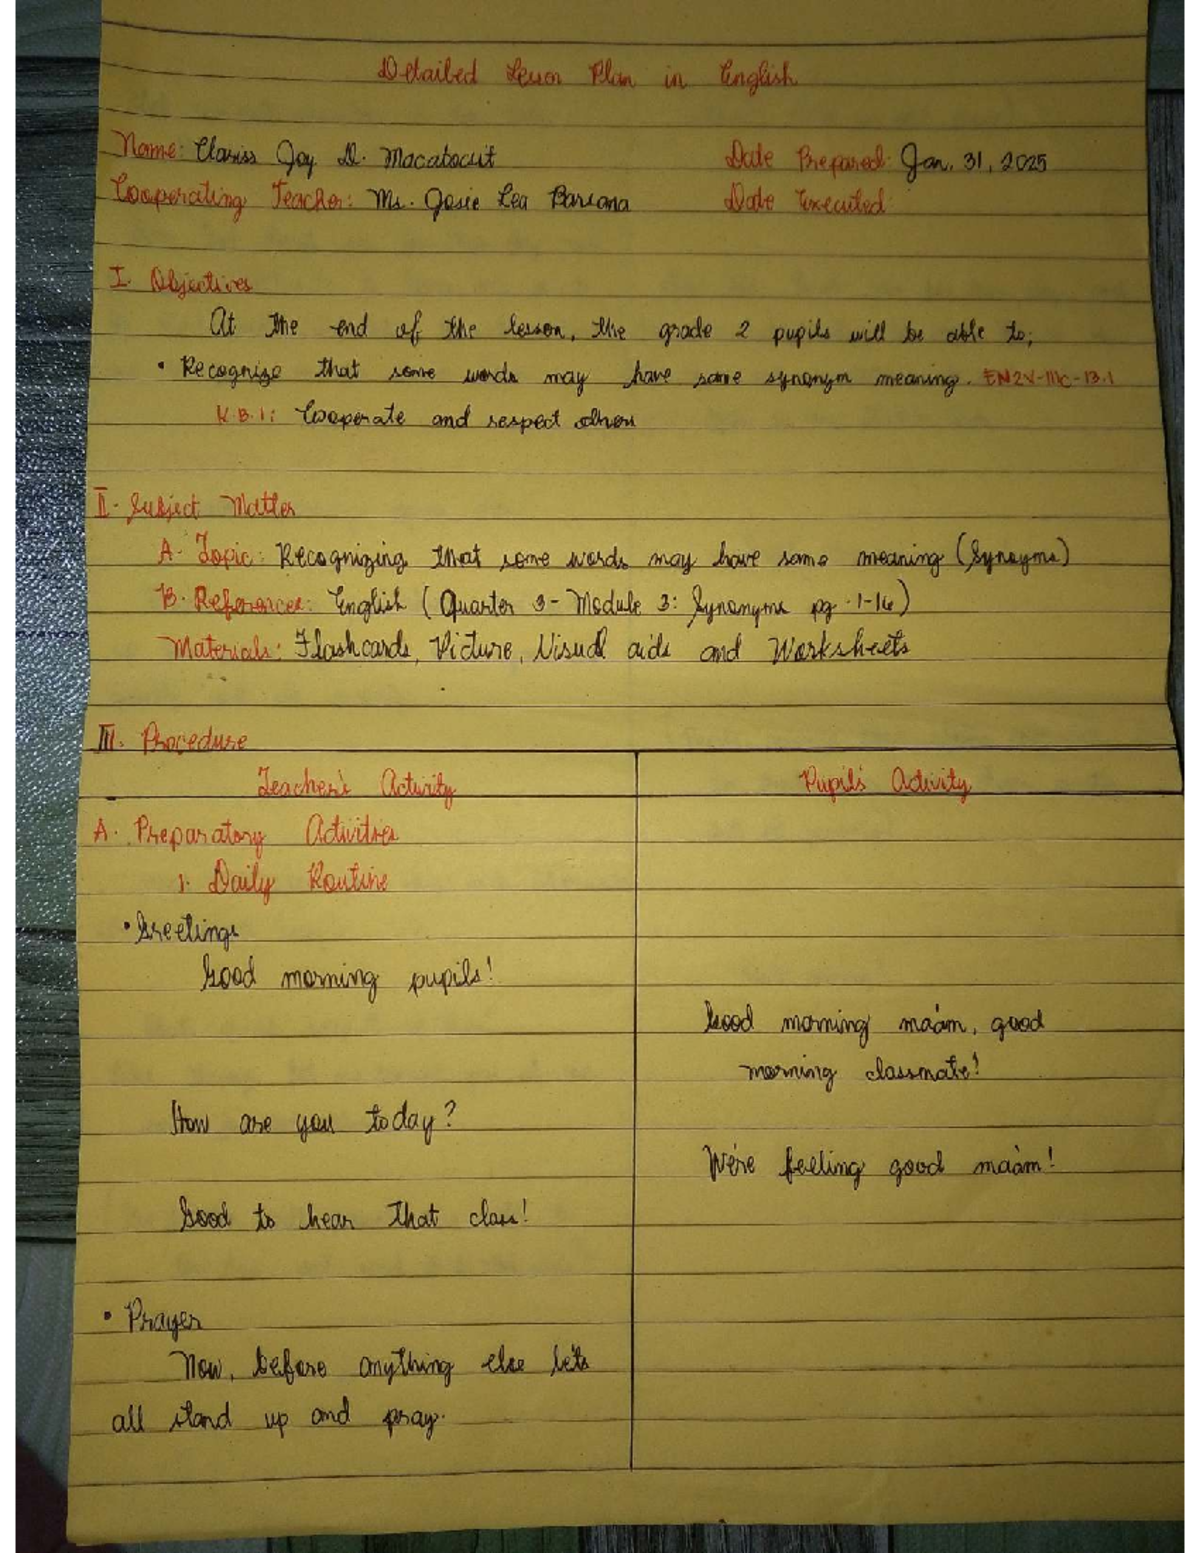 Detailed Lesson Plan in English
Name: Clariss Joy D. Macatocut Date Prepared: Jan. 31, 2025
Cooperating Teacher: Ms. Josie Lea Barcana Date Executed:
I. Objectives
At the end of the lesson, the grade 2 pupils will be able to;
• Recognize that some words may have same synonym meaning. EN2V-IIIc-13.1
K.B.I: Cooperate and respect others
II. Subject Matter
A. Topic: Recognizing that some words may have same meaning (Synoyms)
B. References: English (Quarter 3- Module 3: Synonyms pg. 1-16)
Materials: Flashcards, Picture, Visual aids and Worksheets
III. Procedure
Teacher's Activity Pupil's Activity
A. Preparatory Activities
1. Daily Routine
• Greetings
Good morning pupils!
Good morning ma'am, good
morning classmate!
How are you today?
We're feeling good ma'am!
Good to hear that class!
• Prayer
Now, before anything else let's
all stand up and pray.